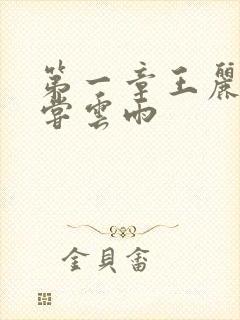 第一章王麗
嘗雲雨
金貝畚